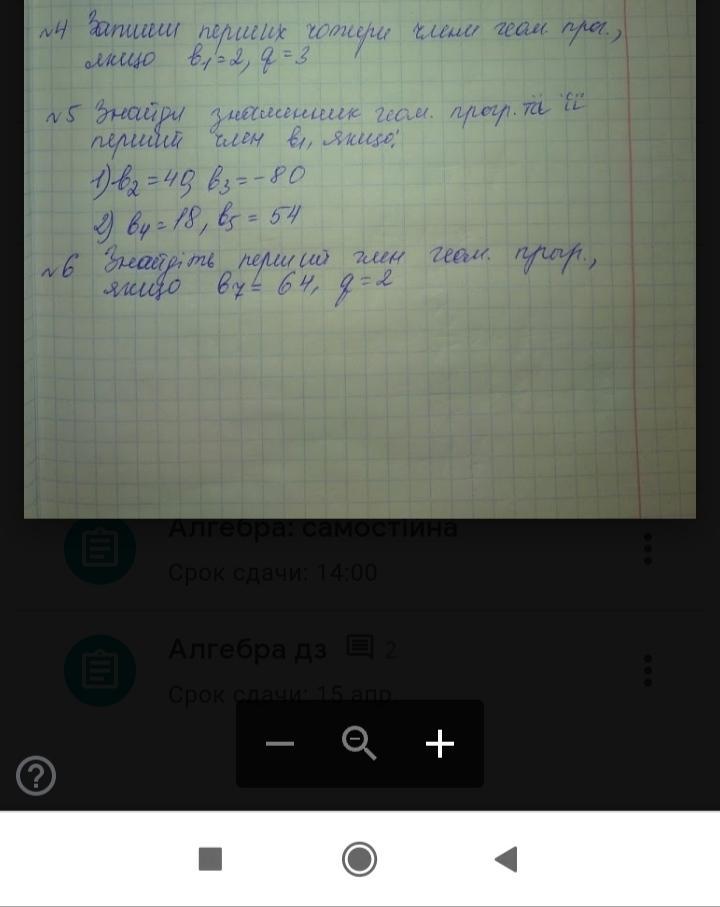 №4 Запиши перших чотири члени геом. прог.,
якщо b₁=2, q=3
№5 Знайди знаменник геом. прогр. та її
перший член b₁, якщо:
1) b₂=40, b₃=-80
2) b₄=18, b₅=54
№6 Знайдіть перший член геом. прогр.,
якщо b₇=64, q=2
Алгебра: самостійна
Срок сдачи: 14:00
Алгебра дз 2
Срок сдачи: 15 апр.
?